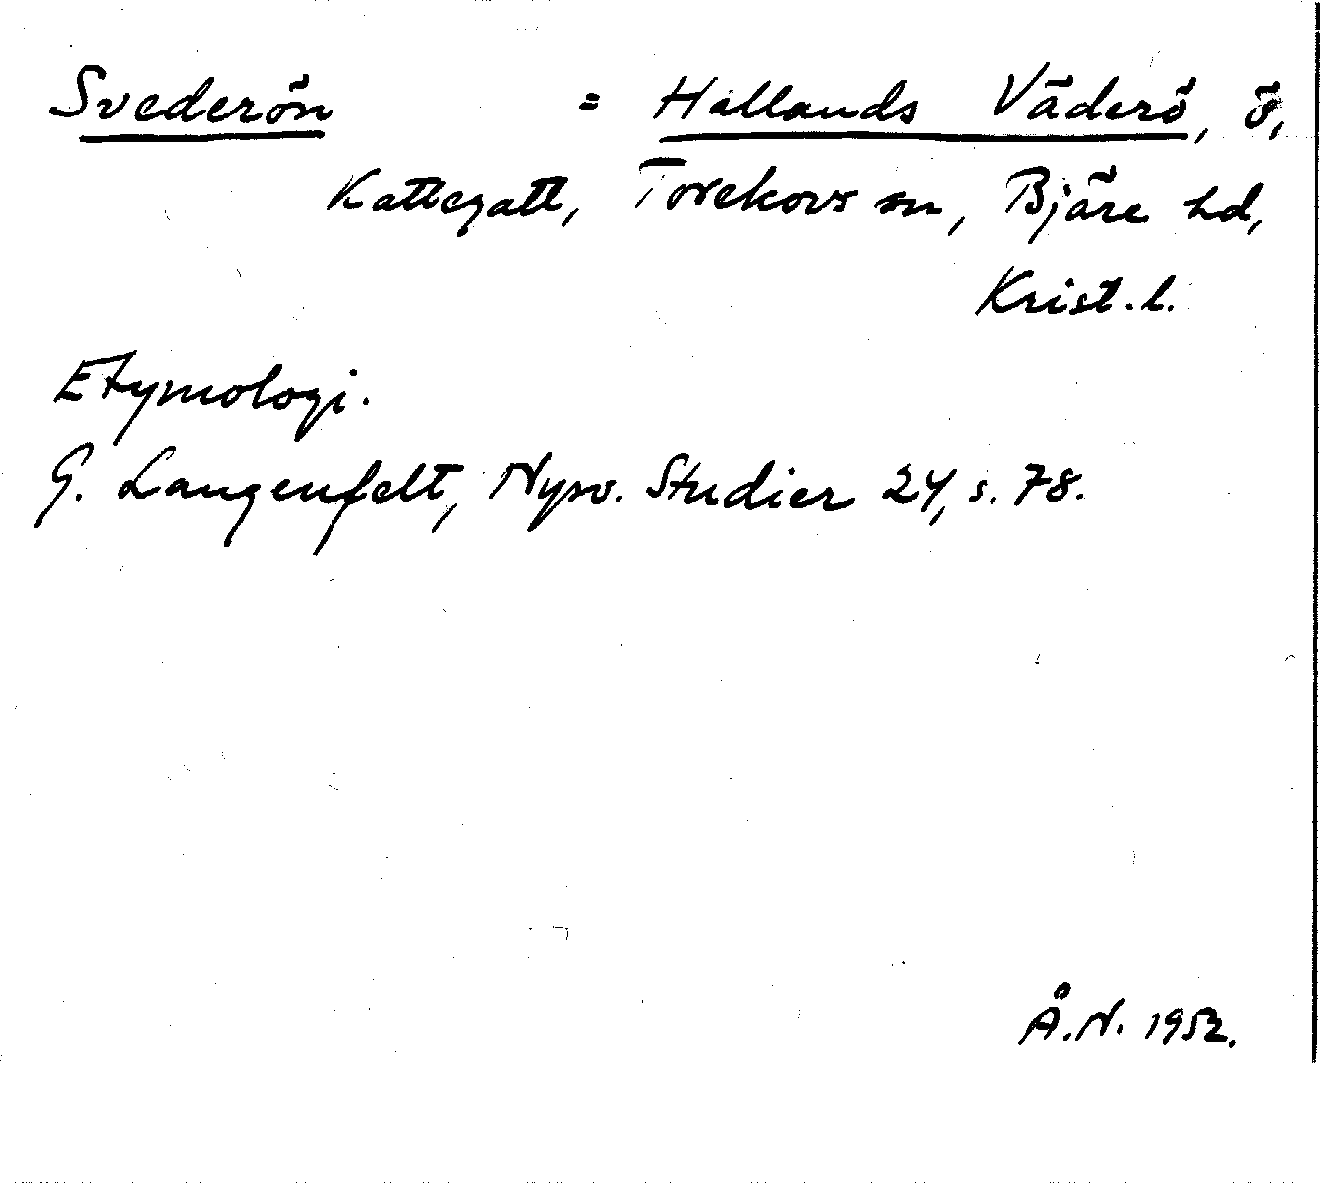 Svederön = Hallands Väderö, ö,
Kattegatt, Torekovs sn, Bjäre hd,
Krist. l.
Etymologi.
G. Langenfelt, Nysv. Studier 24, s. 78.
Å.N. 1952.